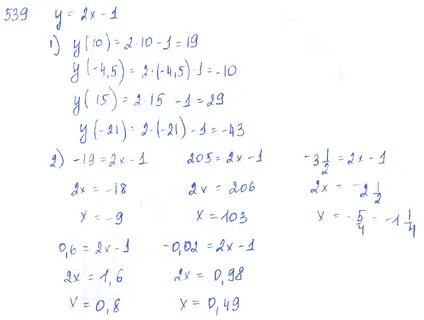 539 y = 2x - 1
1) y(10) = 2·10 - 1 = 19
y(-4,5) = 2·(-4,5)-1 = -10
y(15) = 2·15 - 1 = 29
y(-21) = 2·(-21) - 1 = -43
2) -19 = 2x - 1 205 = 2x - 1 -3 1/2 = 2x - 1
2x = -18 2x = 206 2x = -2 1/2
x = -9 x = 103 x = -5/4 = -1 1/4
0,6 = 2x - 1 -0,02 = 2x - 1
2x = 1,6 2x = 0,98
x = 0,8 x = 0,49